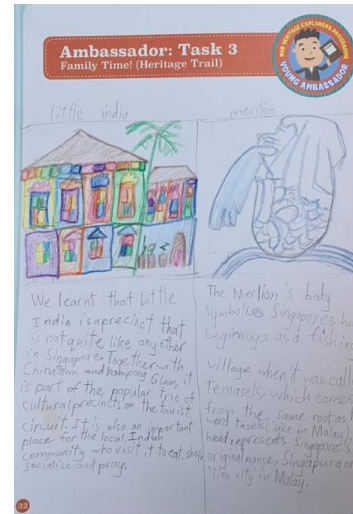 Ambassador: Task 3
Family Time! (Heritage Trail)
NHB HERITAGE EXPLORERS PROGRAMME
YOUNG AMBASSADOR
little india
merlion
We learnt that Little
India is a precinct that
is not quite like any other
in Singapore. Together with
Chinatown and Kampong Glam, it
is part of the popular trio of
cultural precincts on the tourist
circuit. It is also an important
place for the local Indian
community who visit it to eat, shop,
socialise and pray.
The Merlion's body
symbolises Singapore's
beginnings as a fishing
village when it was call
Temasek, which comes
from the same root as
word tasek (lake in Malay).
head represents Singapore's
original name, Singapura or
'lion city' in Malay.
32